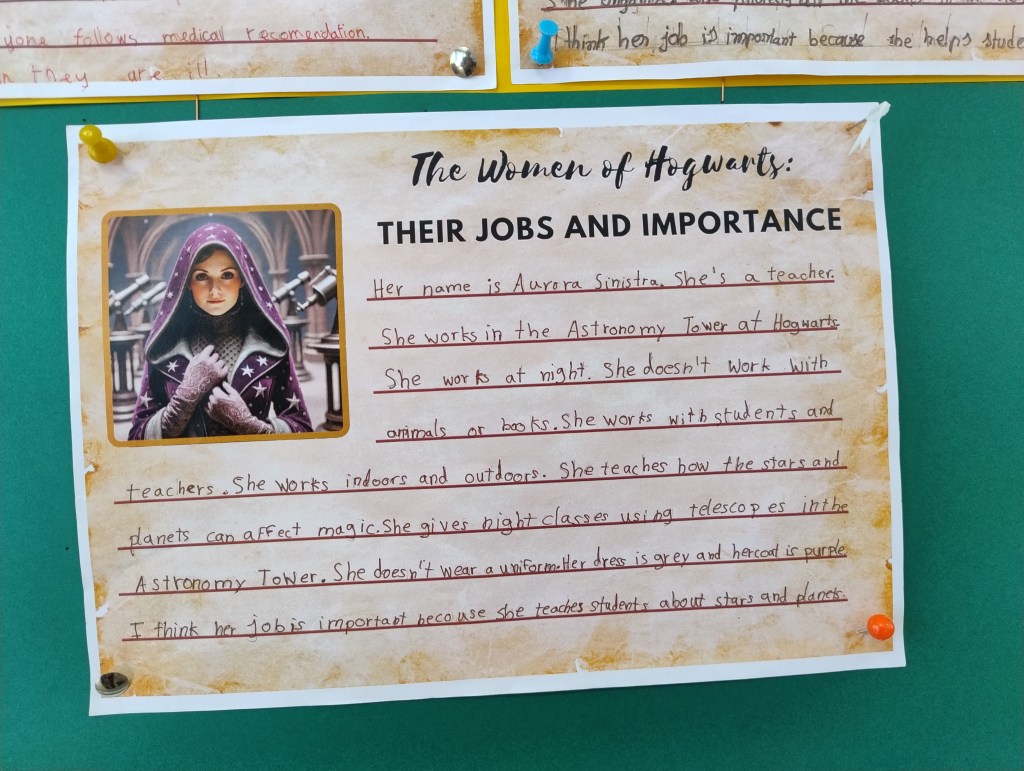 yone follows medical recomendation.
n they are ill.
I think her job is important because she helps stude
The Women of Hogwarts:
THEIR JOBS AND IMPORTANCE
Her name is Aurora Sinistra. She's a teacher.
She works in the Astronomy Tower at Hogwarts
She works at night. She doesn't work with
animals or books. She works with students and
teachers. She works indoors and outdoors. She teaches how the stars and
planets can affect magic. She gives night classes using telescopes in the
Astronomy Tower. She doesn't wear a uniform. Her dress is grey and her coat is purple
I think her job is important becouse she teaches students about stars and planets.